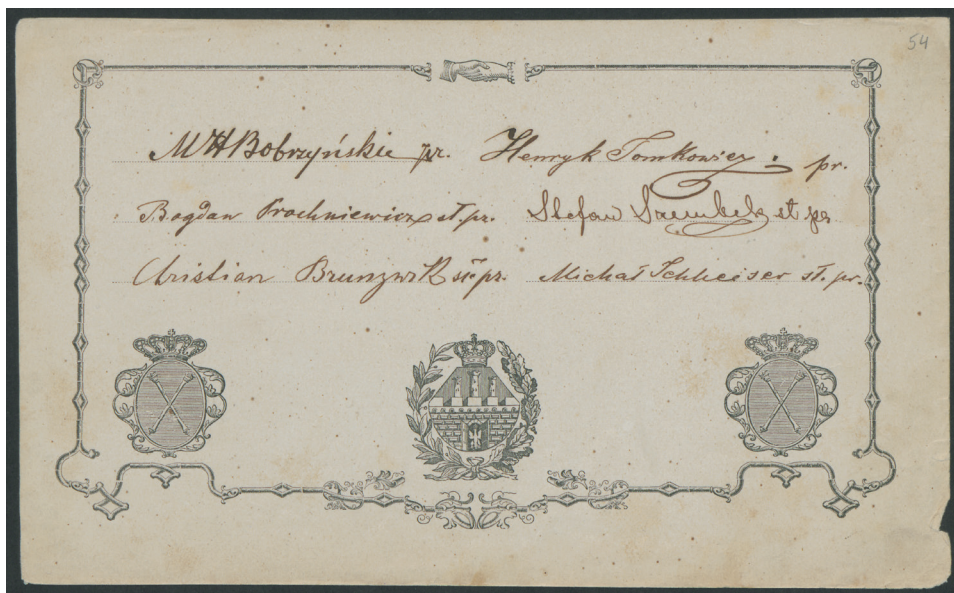 54
M H Bobrzyński pr. Henryk Tomkowicz pr.
Bogdan Prochniewicz st. pr. Stefan Szembek st pr
Christian st. pr. Michał Schleiser st. pr.